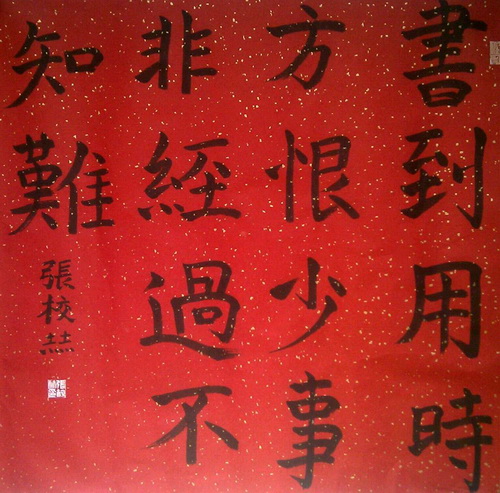 書到用時
方恨少事
非經過不
知難
張校